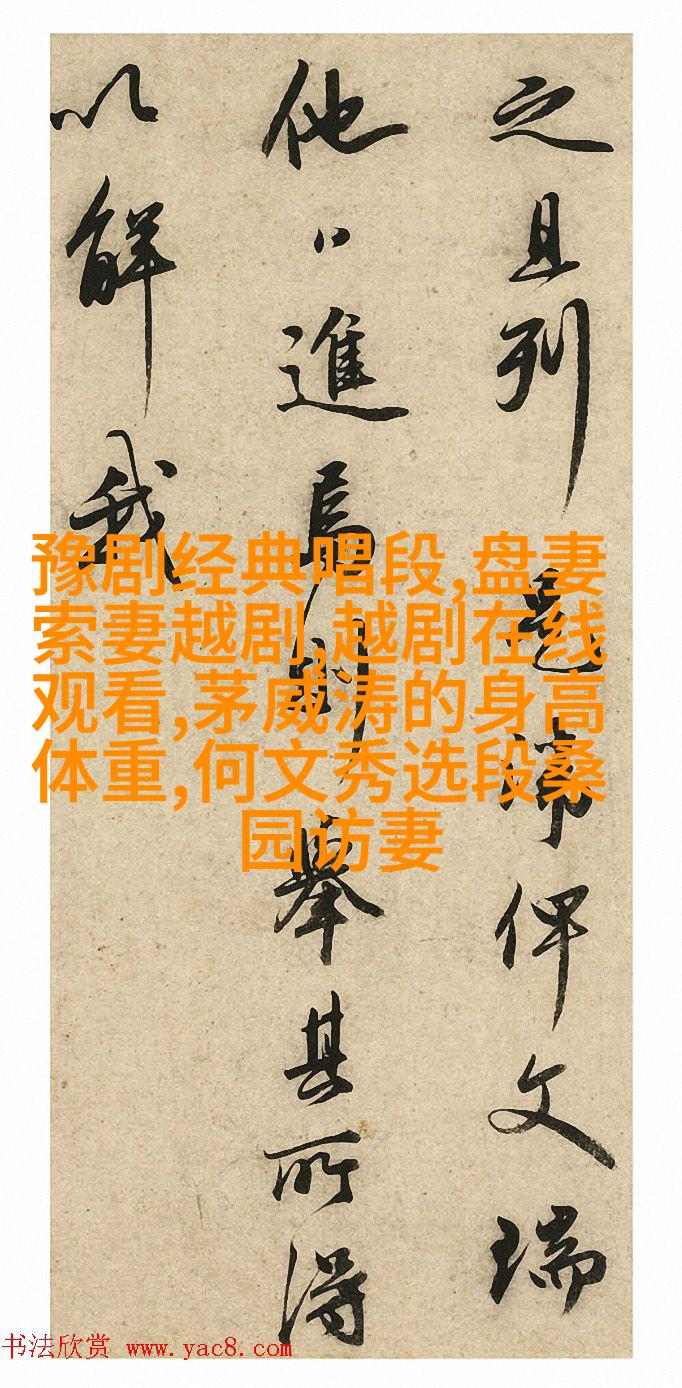 之且列諦俾文瑞
他日進焉則舉其所得
以解我
豫剧经典唱段,盘妻
索妻越剧,越剧在线
观看,茅威涛的身高
体重,何文秀选段桑
园访妻
书法欣赏 www.yac8.com